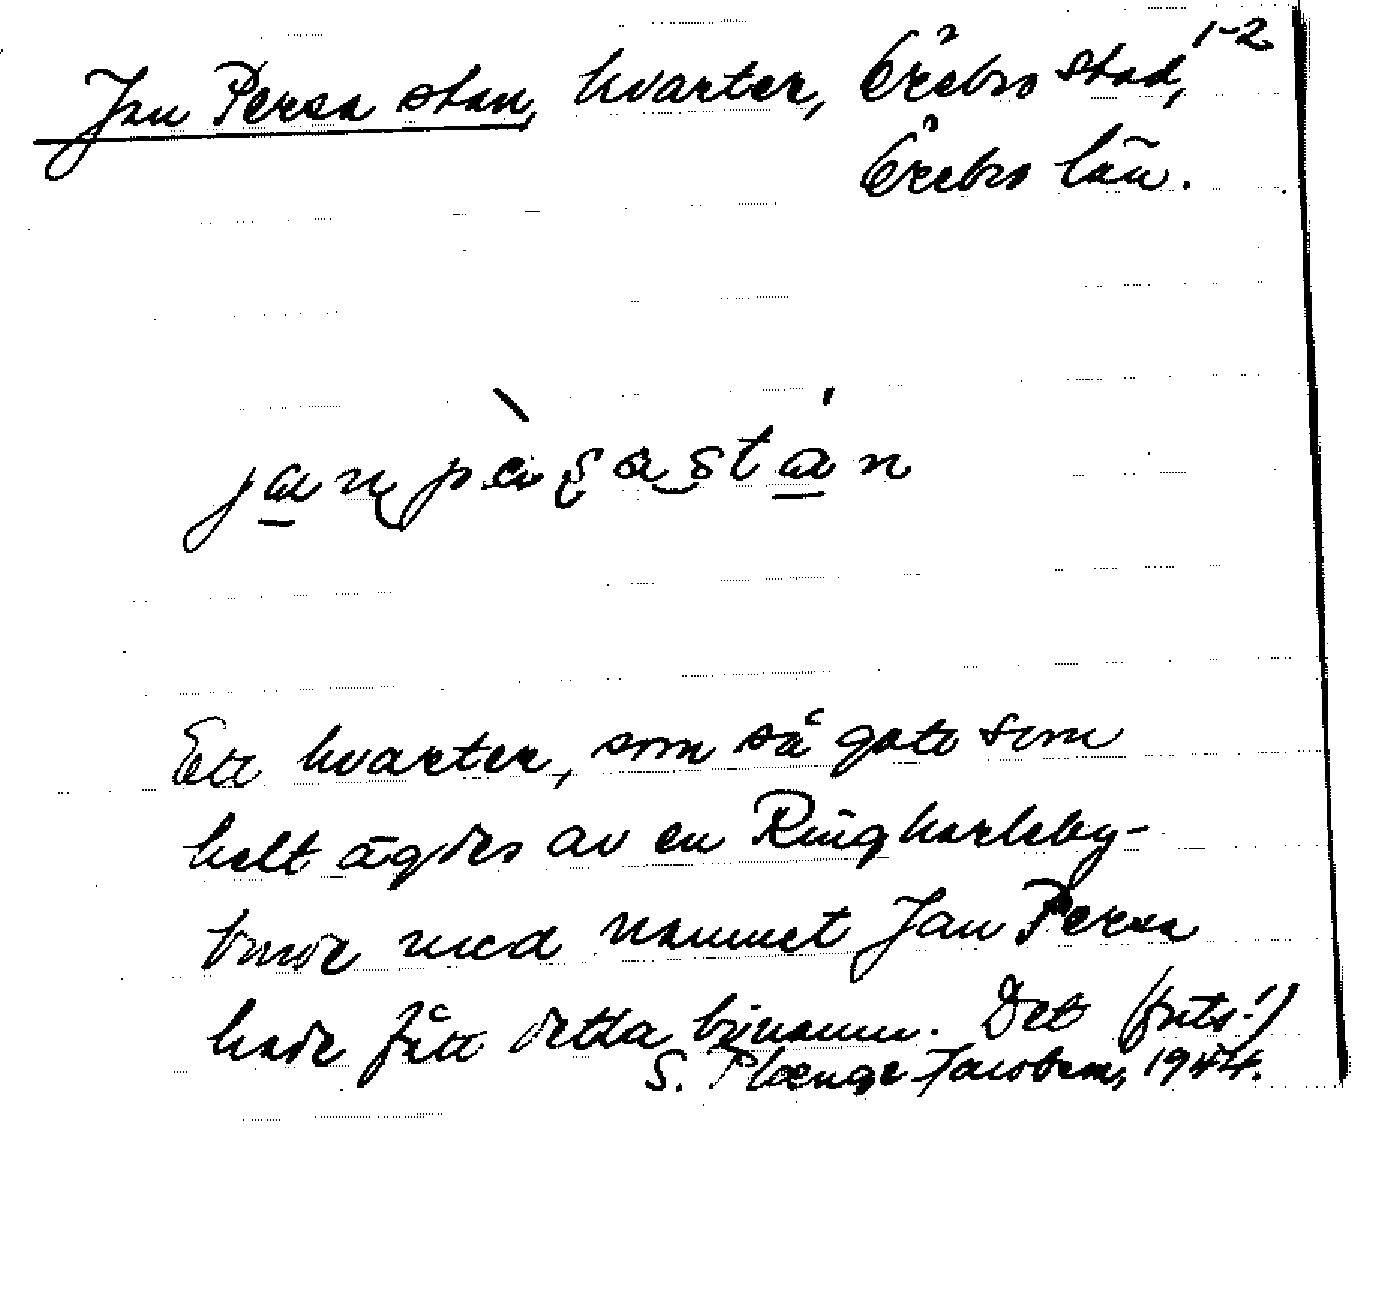 1-2
Jan Persa stan, kvarter, Örebro stad,
Örebro län.
jan pæʂa stán
Ett kvarter, som så gott som
helt ägdes av en Ringkarleby-
bonde med namnet Jan Persa
hade fått detta binamn. Det (forts.!)
S. Plænge Jacobson, 1944.